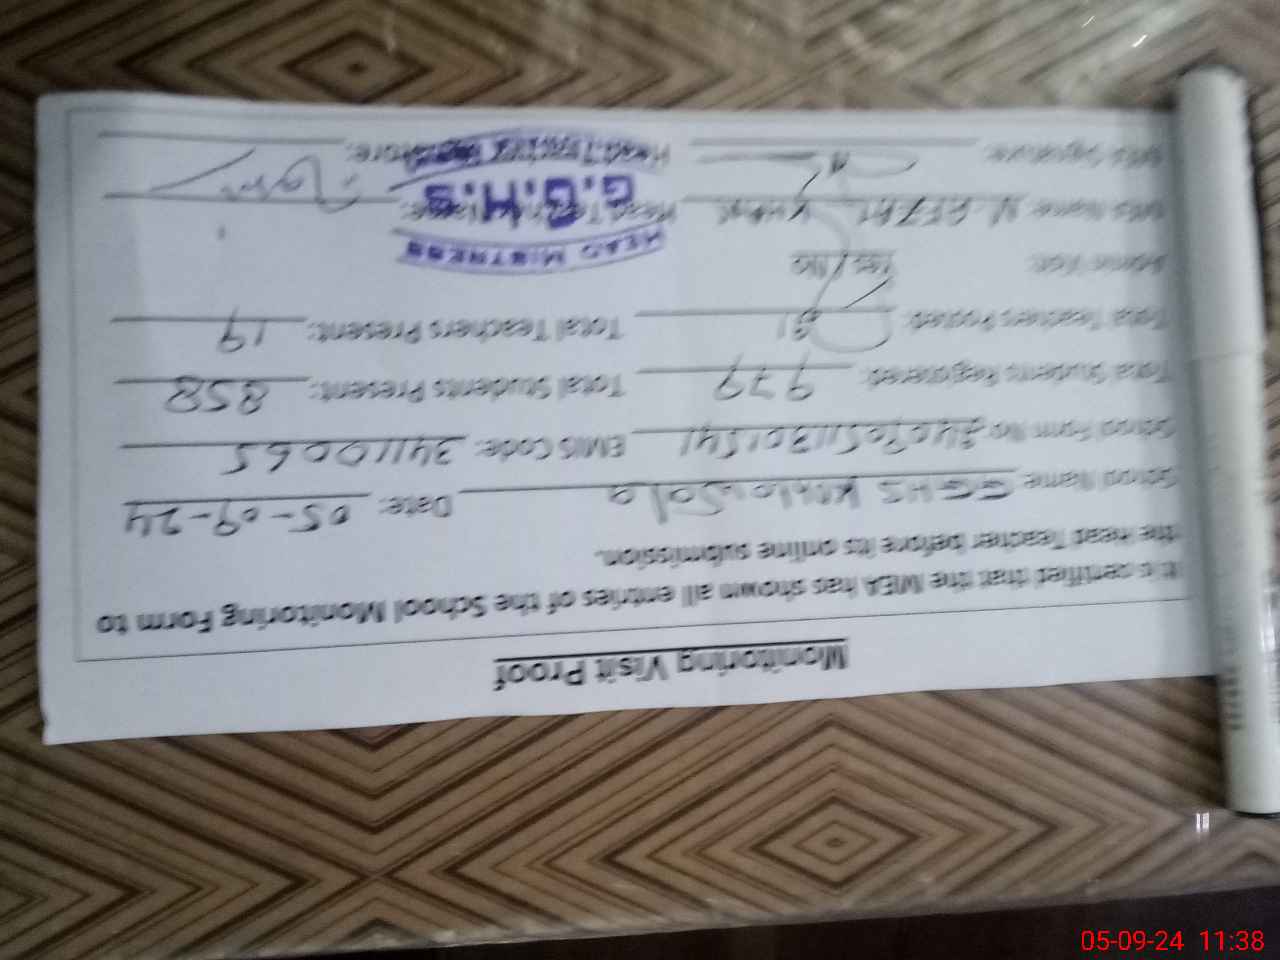 Monitoring Visit Proof
It is certified that the MEA has shown all entries of the School Monitoring Form to
the Head Teacher before its online submission.
School Name: GGHS Date: 05-09-24
School Form No: EMIS Code: 34110065
Total Students Registered: 979 Total Students Present: 858
Total Teachers Posted: Total Teachers Present: 19
Admin Visit: Yes / No
HEAD MISTRESS
MEA Name: Head Teacher Name:
G.G.H.S
MEA Signature: Head Teacher Signature:
05-09-24 11:38